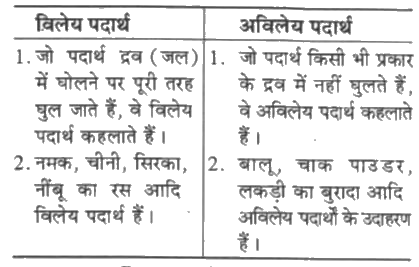 विलेय पदार्थ
1. जो पदार्थ द्रव (जल)
में घोलने पर पूरी तरह
घुल जाते हैं, वे विलेय
पदार्थ कहलाते हैं।
2. नमक, चीनी, सिरका,
नींबू का रस आदि
विलेय पदार्थ हैं।
अविलेय पदार्थ
1. जो पदार्थ किसी भी प्रकार
के द्रव में नहीं घुलते हैं,
वे अविलेय पदार्थ कहलाते
हैं।
2. बालू, चाक पाउडर,
लकड़ी का बुरादा आदि
अविलेय पदार्थों के उदाहरण
हैं।